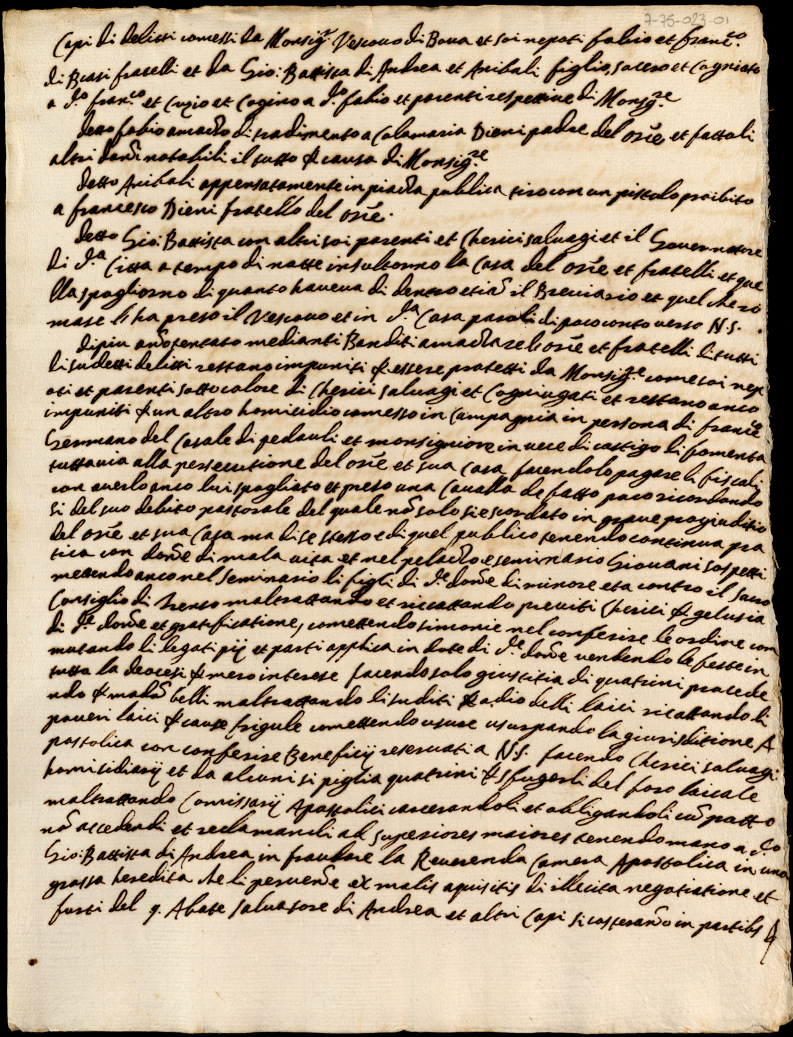 7-75-023-01
Capi di delitti comessi da Monsig.r Vescovo di Bova et soi nepoti fabio et franc.o
di Blasi fratelli et da Gio: Battista di Andrea et Anibali figlio, socero et Cogniato
a d.o fran.co et Cugio et Cogino a d.o fabio et parenti respettive di Monsig.re
detto fabio amazzò di tradimento a Colamaria Dieni padre del orē, et fattoli
altri danni notabili il tutto p causa di Monsig.re
detto Anibali appensatamente in piazza publica tiro con un pistolo proibito
a francesco Dieni fratello del orē.
detto Gio: Battista con altri soi parenti et Cherici salvagi et il Governatore
di d.a Citta a tempo di notte insultorno la Casa del orē et fratelli et que
lla spogliorno di quanto haveva di dentro etiā il Breviario et quel che ri
mase li ha preso il Vescovo et in d.a Casa paroli di poco conto verso N.S.
di piu anō tentato medianti Banditi amazzare lo orē et fratelli di tutti
li sudetti delitti restano impuniti p essere protetti da Monsig.re come soi nep
oti et parenti sotto colore di Cherici salvagi et Cogniugati et restano anco
impuniti p un altro homicidio comesso in Campagnia in persona di franc.o
Germano del Casale di pedauli et monsigniore in vece di castigo li fomenta
tuttavia alla persecutione del orē et sua Casa facendolo pagare li fiscali
con averlo anco lui spogliato et preso una Cavalla de fatto poco ricordando
si del suo debito pastorale del quale nō solo si e scordato in grave pregiuditio
del orē et sua Casa ma di se stesso e di quel publico tenendo continua pra
tica con donne di mala vita et nel pelazzo e seminario Giovani sospetti
mettendo anco nel seminario li figli di d.e donne di minore eta contro il sacro
Consiglio di Trento maltrattando et riccattando previti Cherici p gelusia
di d.e donne et gratificatione, comettendo simonie nel conferire le ordine com
mutando li legati pij et parti applica in dote di d.e donne vendendo le feste in
tutta la deocesi p mero interese facendo solo giustitia di quatrini procede
ndo p modō belli maltrattando li suditi p odio delli laici ricattando li
poveri laici p cause frigule comettendo usure usurpando la giurisditione A
postolica con conferire Beneficij reservati a N.S. facendo Cherici salvagi
homisidiarij et da alcuni si piglia quatrini p sfugerli del foro laicale
maltrattando Comissarij Apostolici carcerandoli et obligandoli cū patto
nō accedendi et reclamandi ad superiores maiores tenendo mano a d.o
Gio: Battista di Andrea in fraudare la Reverenda Camera Apostolica in una
grossa heredita che li pervenne ex malis aquisitis di illecita negotiatione et
furti del q. Abate Salvatore di Andrea et altri Capi si costeranno in partibs